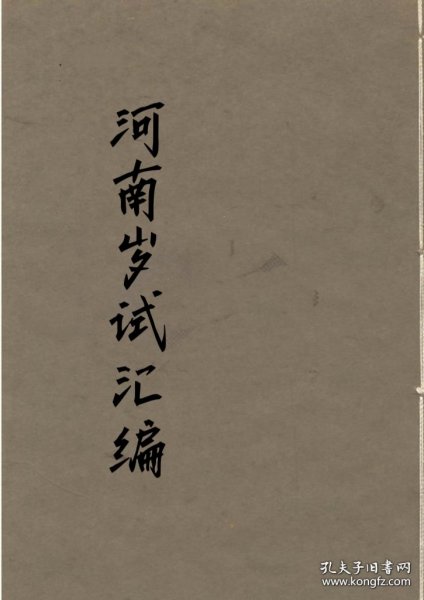 河南岁试汇编
孔夫子旧书网
www.kongfz.com